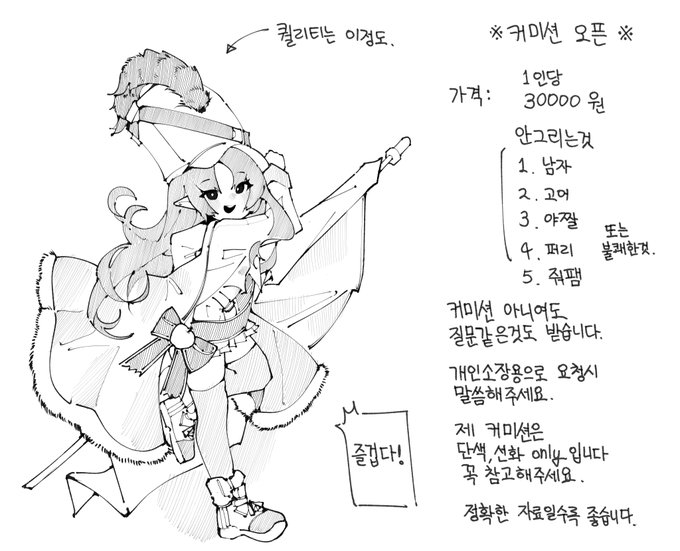 퀄리티는 이정도.
※커미션 오픈※
가격: 1인당
30000원
안그리는것
1. 남자
2. 고어
3. 야짤
4. 퍼리
5. 줘팸
또는
불쾌한것.
커미션 아니여도
질문같은것도 받습니다.
개인소장용으로 요청시
말씀해주세요.
제 커미션은
단색,선화 only 입니다
꼭 참고해주세요.
정확한 자료일수록 좋습니다.
즐겁다!